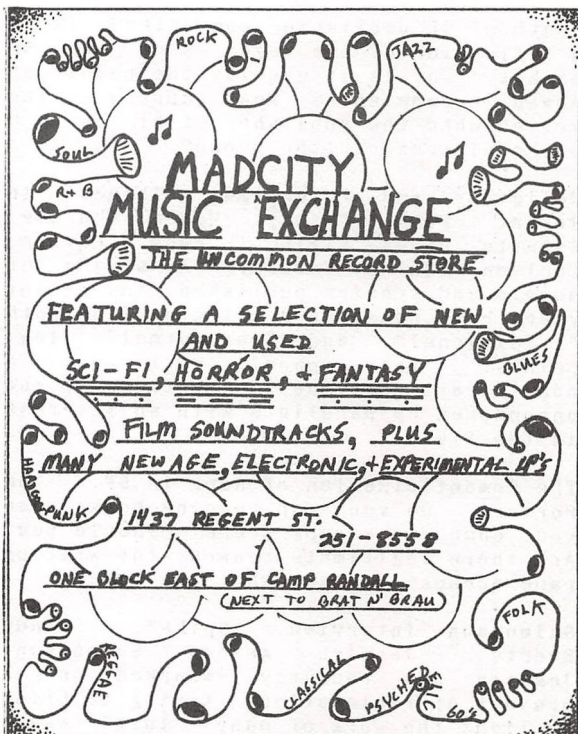 ROCK
JAZZ
SOUL
R+B
MADCITY
MUSIC EXCHANGE
THE UNCOMMON RECORD STORE
FEATURING A SELECTION OF NEW
AND USED
SCI-FI, HORROR, + FANTASY
BLUES
FILM SOUNDTRACKS, PLUS
MANY NEW AGE, ELECTRONIC, + EXPERIMENTAL LP'S
HARDCORE PUNK
1437 REGENT ST.
251-8558
ONE BLOCK EAST OF CAMP RANDALL
(NEXT TO BRAT N' BRAU)
FOLK
REGGAE
CLASSICAL
PSYCHEDELIC
60'S